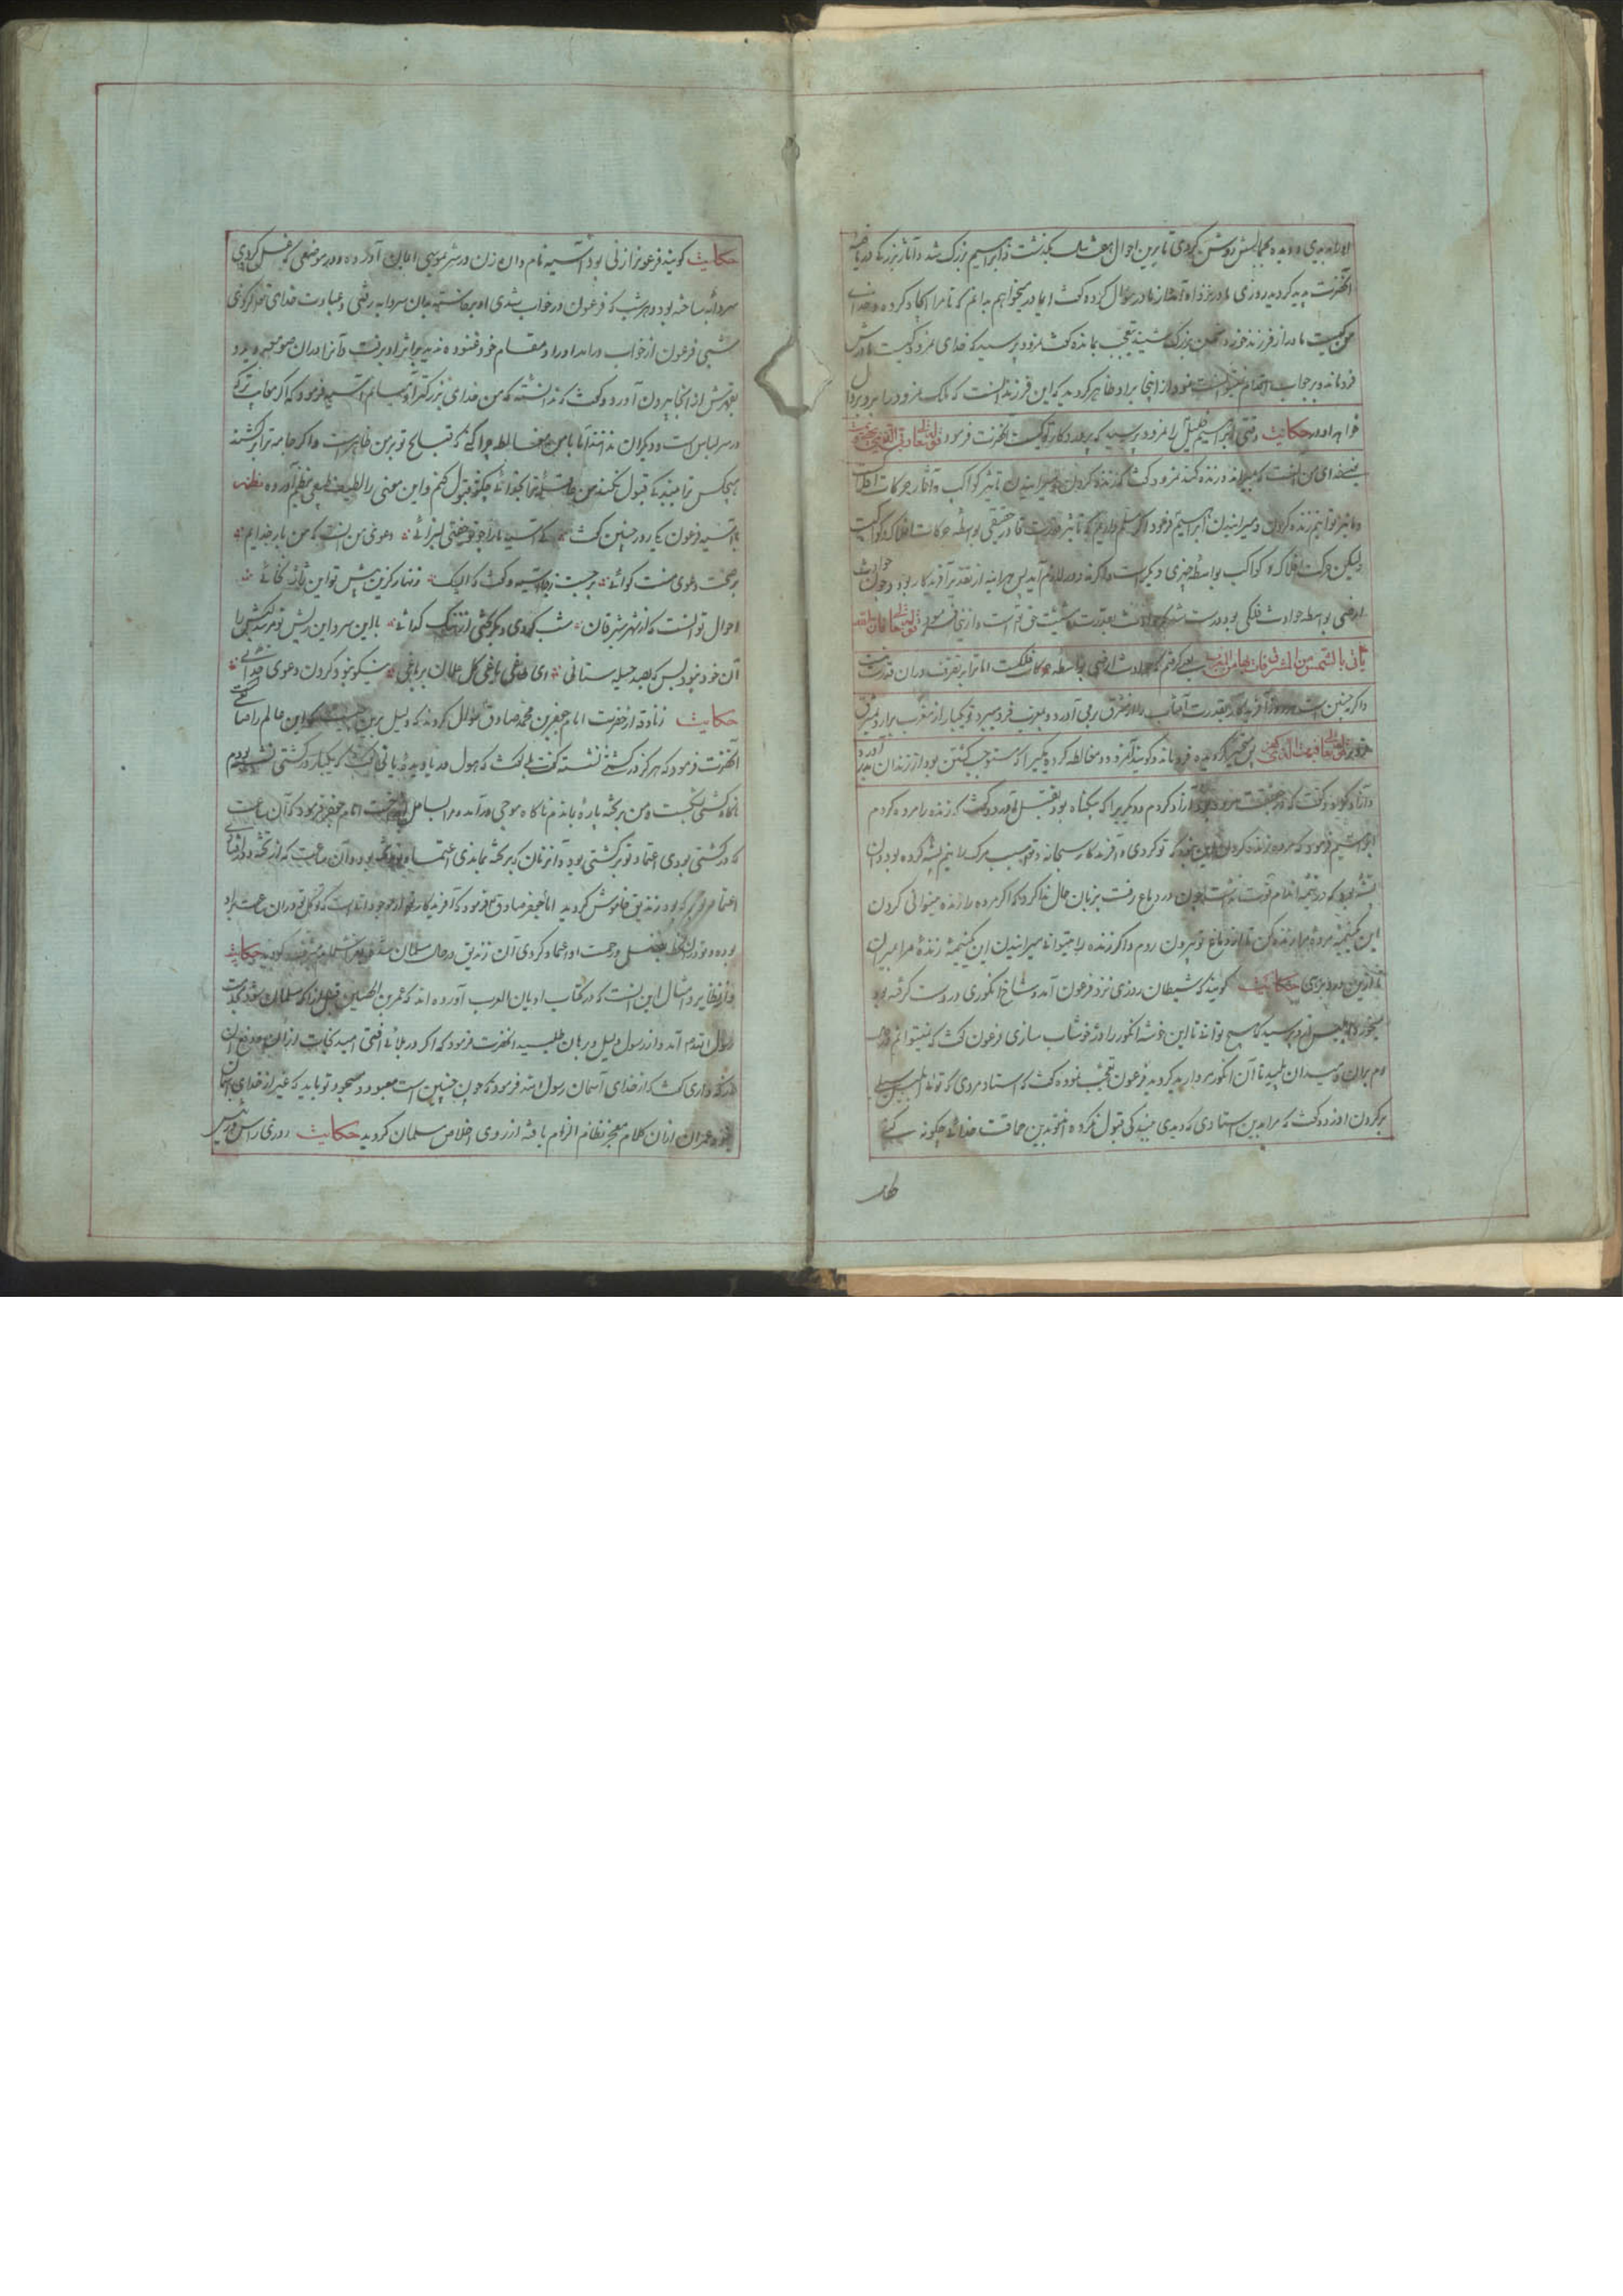 او را بدیدی و دیده بجمالش روشن کردی تا برین احوال هفت سال بگذشت و ابراهیم بزرگ شد و آثار بزرگی در ناصیهٔ
آنحضرت پدید گردید روزی مادر نزد او آمد از مادر سؤال کرد و گفت ای مادر میخواهم بدانم که تا مرا ایجاد کرده و خدای
من کیست مادر از فرزند خورد سخن بزرگ شنید تعجب بمانده گفت نمرود پرسید که خدای نمرود کیست مادرش
فروماند و بر جواب اقدام نتوانست نمود از اینجا بر او ظاهر گردید که این فرزند آنست که ملک نمرود را بر
حکایت وقتی ابراهیم خلیل را نمرود پرسید که پروردگار تو کیست آنحضرت فرمود قوله تعالی ربی الذی یحیی و یمیت
یعنی خدای من آنست که بمیراند و زنده کند نمرود گفت که زنده کردن و میرانیدن تاثیر کواکب و آثار حرکات افلاک است
و ما نیز توانیم زنده کردن و میرانیدن ابراهیم فرمود اگر مسلم داریم که تاثیر قدرت قادر حقیقی بواسطهٔ حرکات افلاک و کواکب است
ولیکن حرکت افلاک و کواکب بواسطهٔ چیزی دیگر است و اگر نه دور لازم آید پس هر آینه از تقدیر آفریدگار بود و چون حوادث
ارضی بواسطه حوادث فلکی بود درست شد که حوادث بقدرت و مشیت حق است و از ینجا فرمود قوله تعالی فان الله
یأتی بالشمس من المشرق فات بها من المغرب یعنی گرفتم که حوادث ارضی بواسطه حرکات فلکست اما ترا بر تصرف در آن قدرت نیست
و اگر چنین است هر روز آفریدگار بقدرت آفتاب را از مشرق بر می آورد و بمغرب فرو میبرد تو یکبار از مغرب برآر و بمشرق
فرو بر قوله تعالی فبهت الذی کفر پس متحیر گردیده فرو ماند و گویند نمرود مغالطه کرد و یکی را که مستوجب کشتن بود از زندان بدر آورد
و آزاد کرد و گفت که در حقیقت مرده بود آزاد کردم و دیگری را که بیگناه بود بقتل آورد و گفت که زنده را مرده کردم
ابراهیم فرمود که مرده زنده کردن این نبود که تو کردی
پشه بود که در نیمهٔ اندام قوت نداشت چون در دماغ رفت بزبان حال ندا کرد که اگر مرده را زنده میتوانی کردن
این یک نیمهٔ مردهٔ مرا زنده کن تا از دماغ تو بیرون روم و اگر زنده را میتوانی میرانیدن این یک نیمهٔ زندهٔ مرا بمیران
تا ازین درد برهی حکایت گویند که شیطان روزی نزد فرعون آمد و شاخ انگوری در دست گرفته بود
میخورد ابلیس از او پرسید که هیچ تواند تا این خوشه انگور را در خوشاب سازی فرعون گفت که نمیتوانم
دم بر آن دمید آن پلید تا آن انگور مروارید گردید فرعون تعجب نموده گفت که استاد مردی که توئی ابلیس سیلی
بر گردن او زد و گفت که مرا بدین استادی که دیدی به بندگی قبول نکردند تو بدین حماقت خدائی چگونه کنی
حکایت گویند فرعون را زنی بود آسیه نام و آن زن در سر بموسی ایمان آورده و در موضعی که غسل کردی
سردابهٔ ساخته بود و هر شب که فرعون در خواب شدی او برخاسته بدان سردابه رفتی و عبادت خدای تعالی کردی
شبی فرعون از خواب درآمد او را در مقام خود غنوده ندید بر اثر او برفت و آنرا در آن صومعه دید
بقهرش از آنجا بیرون آورد و گفت که ندانسته که من خدای بزرگتر آدمیانم آسیه فرمود که اگر معایب ترا که
در سر لباس است دیگران ندانند اما با من مغالطه چرا کنی که قبایح تو بر من ظاهر است و اگر جامه ترا برکشند
هیچکس ترا به بندگی قبول نکند من چگونه ترا بخدائی قبول کنم و این معنی را لطیف طبعی بنظم آورده نظم
با آسیه فرعون یک روز چنین گفت کای آسیه ما را چو تو جفتی بسزائی دعوی من آنست که من بار خدایم
بر صحت دعوی منت گوائی برجست ز جا آسیه و گفت که الیک زنهار کزین بیش تو این ژاژ نخائی
احوال تو آنست که از شهر
آن خود نبود بس که بصد حیله ستانی ای طاغی یاغی کل غلمان بر یاغی نیکو نبود کردن دعوی خدائی
حکایت زنادقه از حضرت امام جعفر بن محمد صادق سؤال کردند که دلیل برین چیست که این عالم را صانعی هست
آنحضرت فرمود که هرگز در کشتی نشستهٔ گفت بلی گفت که هول دریا دیدهٔ یا نی گفت که یکبار در کشتی نشسته بودم
ناگاه کشتی بشکست و من بر تخته پارهٔ بماندم ناگاه موجی درآمد و مرا بساحل انداخت امام جعفر فرمود که آن ساعت
که در کشتی بودی اعتماد تو بر کشتی بود و آنزمان که بر تخته بماندی اعتماد تو بر تخته بود و آن ساعت که از تخته در افتادی
اعتماد تو بر که بود زندیق خاموش گردید امام جعفر صادق فرمود که آفریدگار تو آن موجود است که توکل تو در آن ساعت بر او
بوده و تو در آن لحظه بفضل و رحمت او اعتماد کردی آن زندیق در حال مسلمان شد و بشرف اسلام مشرف گردید حکایت
و از نظایر و امثال این آنست که در کتاب ادیان العرب آورده اند که عمران الحصین قبل از آنکه مسلمان شود بخدمت
رسول الله آمد و از رسول دلیل و برهان طلبید آنحضرت فرمود که اگر در بلائی افتی امید نجات از آن و دفع آن
از که داری گفت که از خدای آسمان رسول الله فرمود که چون چنین است معبود و مسجود تو باید که غیر از خدای آسمان
نبود عمران از آن کلام معجز نظام الزام یافته از روی اخلاص مسلمان گردید حکایت روزی